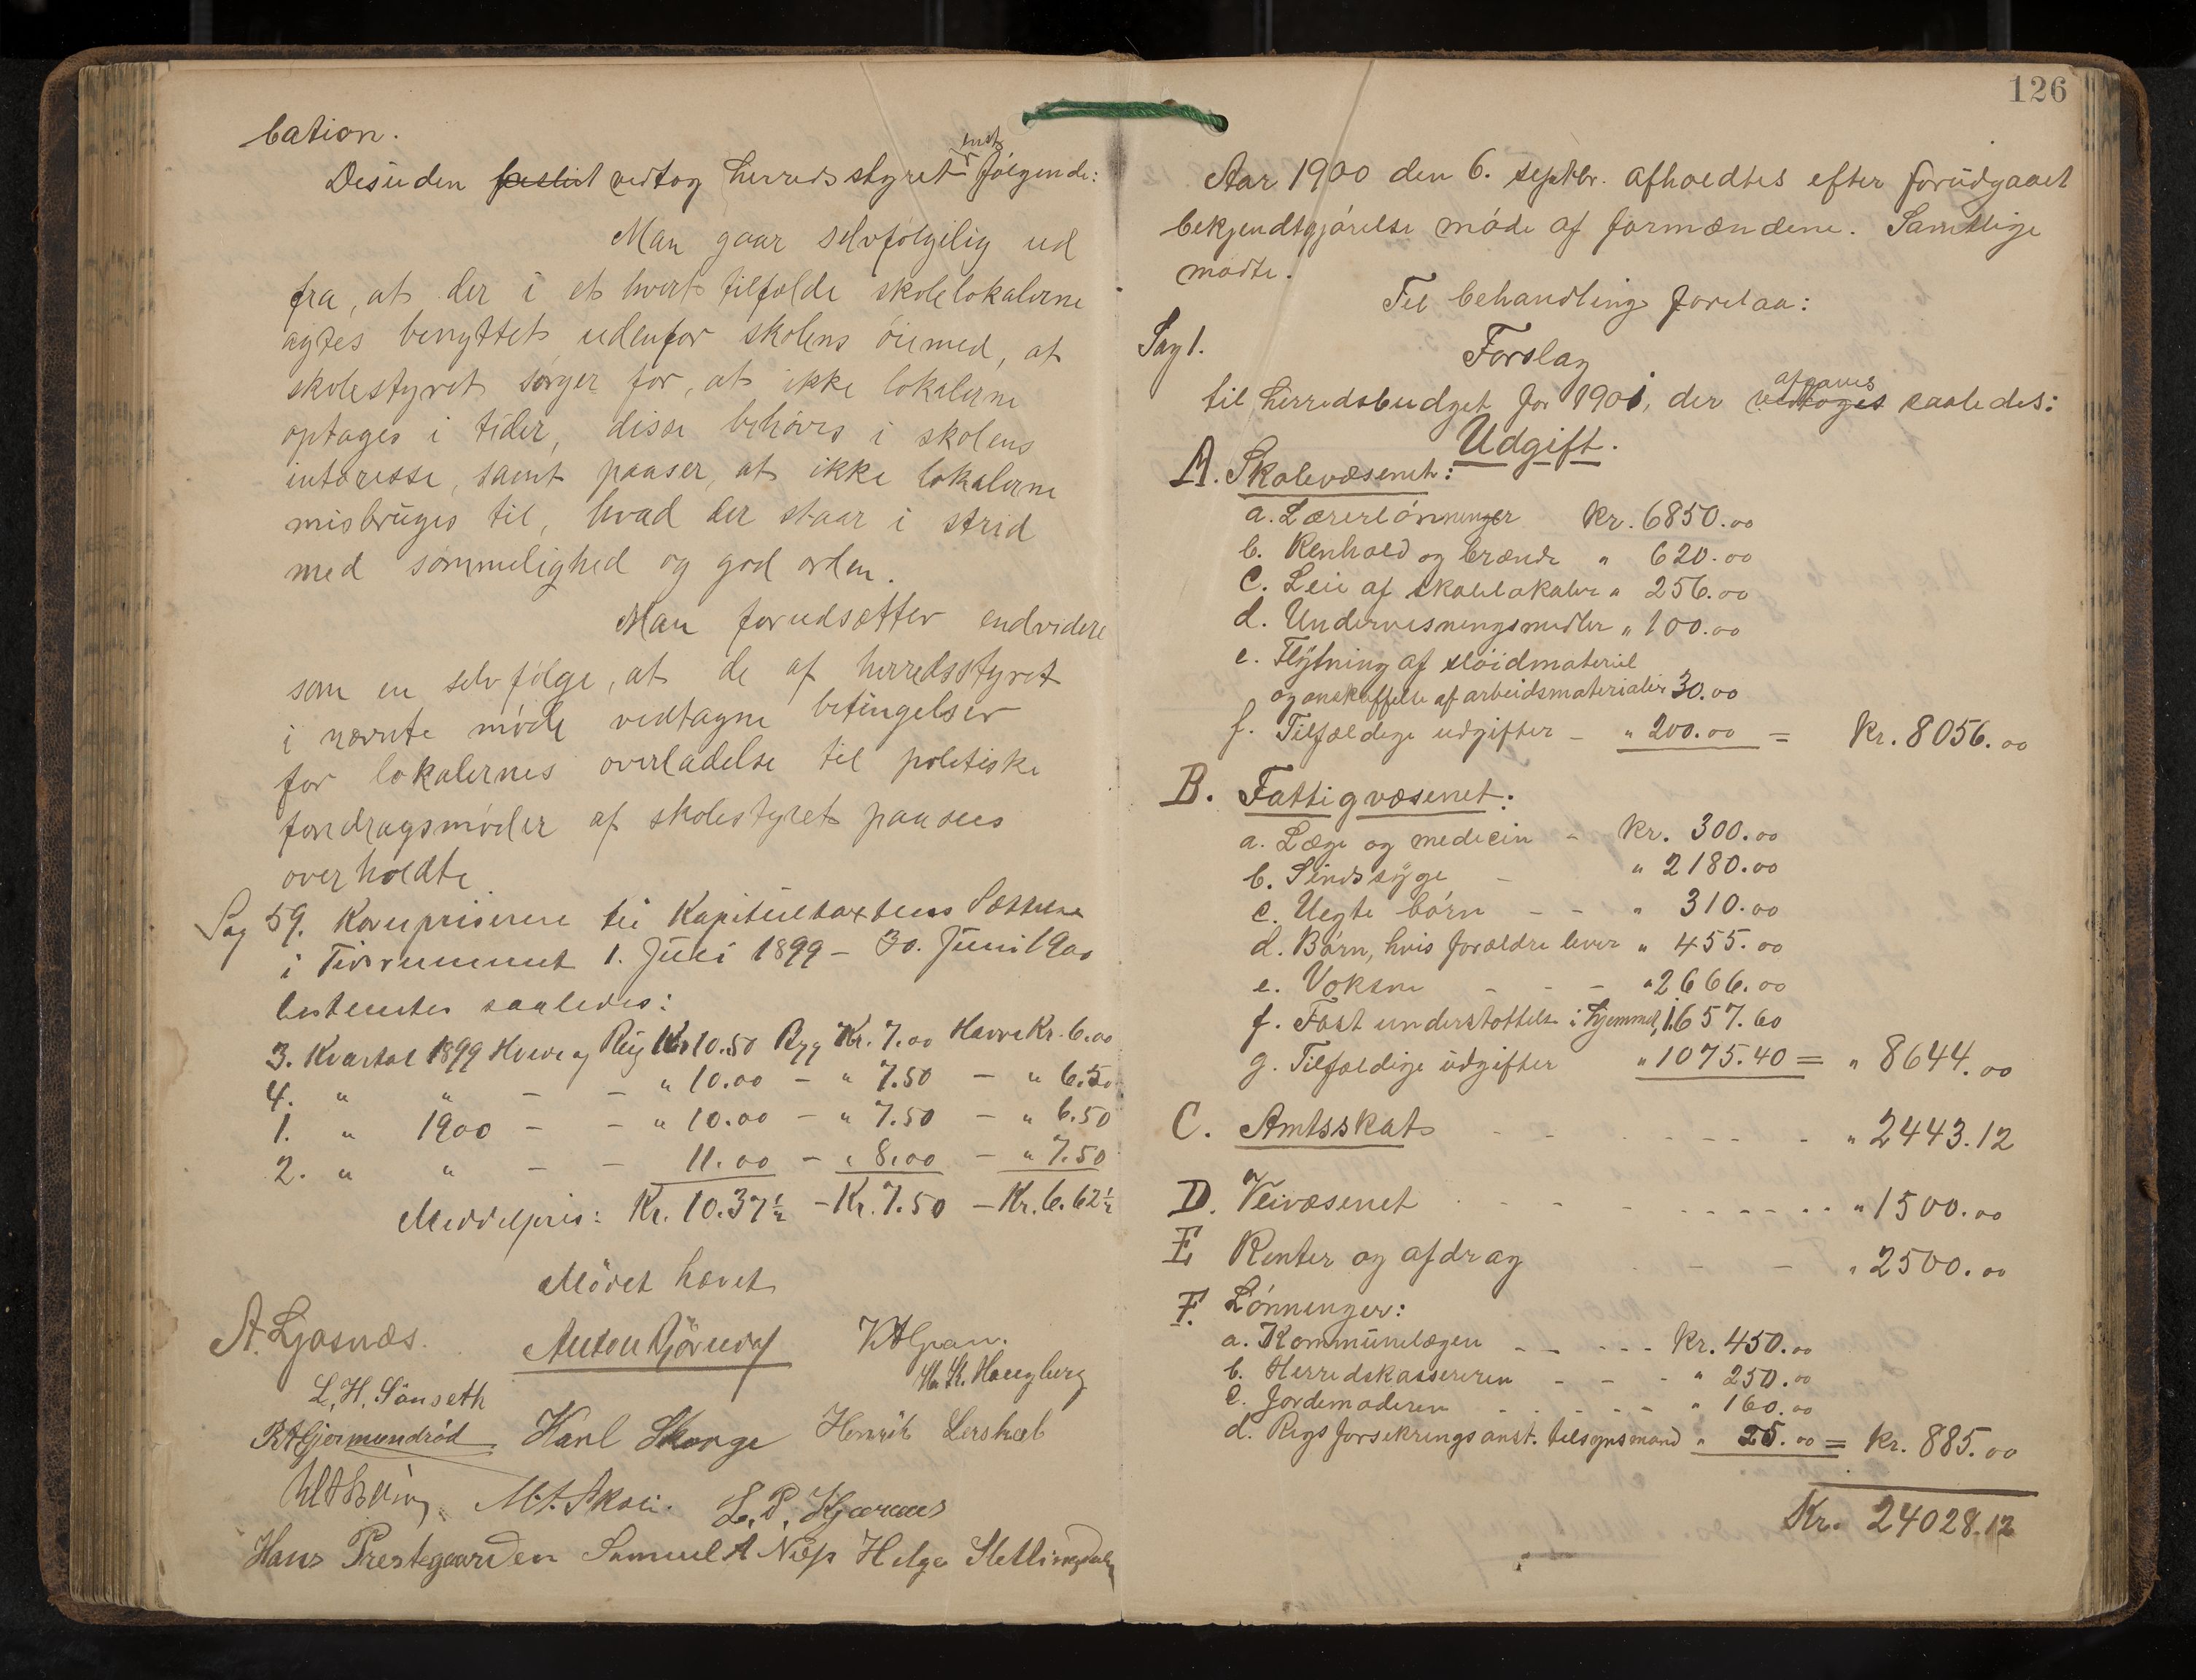 bation.
enst.
Desuden beslut vedtog herredsstyret følgende:
Man gaar selvfølgelig ud
fra, at der i et hvert tilfælde skolelokalerne
agtes benyttet udenfor skolens øiemed, at
skolestyret sørger for, at ikke lokalerne
optages i tider, disse behøves i skolens
interesse, samt paaser, at ikke lokalerne
misbruges til, hvad der staar i strid
med sømmelighed og god orden.
Man forudsætter endvidere
som en selvfølge, at de af herredsstyret
i nævnte møde vedtagne betingelser
for lokalernes overladelse til politiske
fordragsmøder af skolestyret paasees
overholdte
Sag 59. Kornpriserne til Kapiteltaxtens Sættelse
i Tidsrummet 1. Juli 1899 – 30. Juni 1900
bestemtes saaledes:
3. Kvartal 1899 Hvede og Rug Kr 10.50 Byg Kr. 7.00 Havre Kr. 6.00
4. " " – – " 10.00 – " 7.50 – " 6.50
1. " 1900 – – " 10.00 – " 7.50 – " 6.50
2. " " – – 11.00 – " 8.00 – " 7.50
Middelpris: Kr. 10.37½ – Kr. 7.50 – Kr. 6.62½
Mödet hævet
A. Ljosnæs. Anton Gjörudal K A Gran.
L. H. Sönseth H. K. Haugberg
R A Gjermundröd Karl Skarge Henrik
M. A. Skoli. L. P.
Hans Prestegaarden Samuel A Næss Helge
126
Aar 1900 den 6. septbr. afholdtes efter forudgaaet
bekjendtgjørelse møde af formændene. Samtlige
mødte.
Til behandling forelaa:
Sag 1. Forslag
afgaves
til herredsbudget for 1901, der vedtoges saaledes:
Udgift.
A. Skolevæsenet:
a. Lærerlønninger Kr. 6850.00
b. Renhold og brænde " 620.00
c. Leie af skolelokaler " 256.00
d. Undervisningsmidler " 100.00
e. Flytning af sløidmateriel
og anskaffelse af arbeidsmaterialer 30.00
f. Tilfældige udgifter – " 200.00 = Kr. 8056.00
B. Fattigvæsenet:
a. Læge og medicin – Kr. 300.00
b. Sindssyge – " 2180.00
c. Uegte børn – – " 310.00
d. Børn, hvis forældre lever " 455.00
e. Voksne – – – " 2666.00
f. Fast understøttelse i hjemmet, 1657.60
g. Tilfældige udgifter " 1075.40 = " 8644.00
C. Amtsskat – – – – – – – " 2443.12
D. Veivæsenet – – – – – – – " 1500.00
E Renter og afdrag – – – " 2500.00
F. Lønninger:
a. Kommunelægen – – – – – Kr. 450.00
b. Herredskassereren – – – " 250.00
c. Jordemoderen – – – – – " 160.00
d. Rigsforsikringsanst. tilsynsmand " 25.00 = Kr. 885.00
Kr. 24028.12